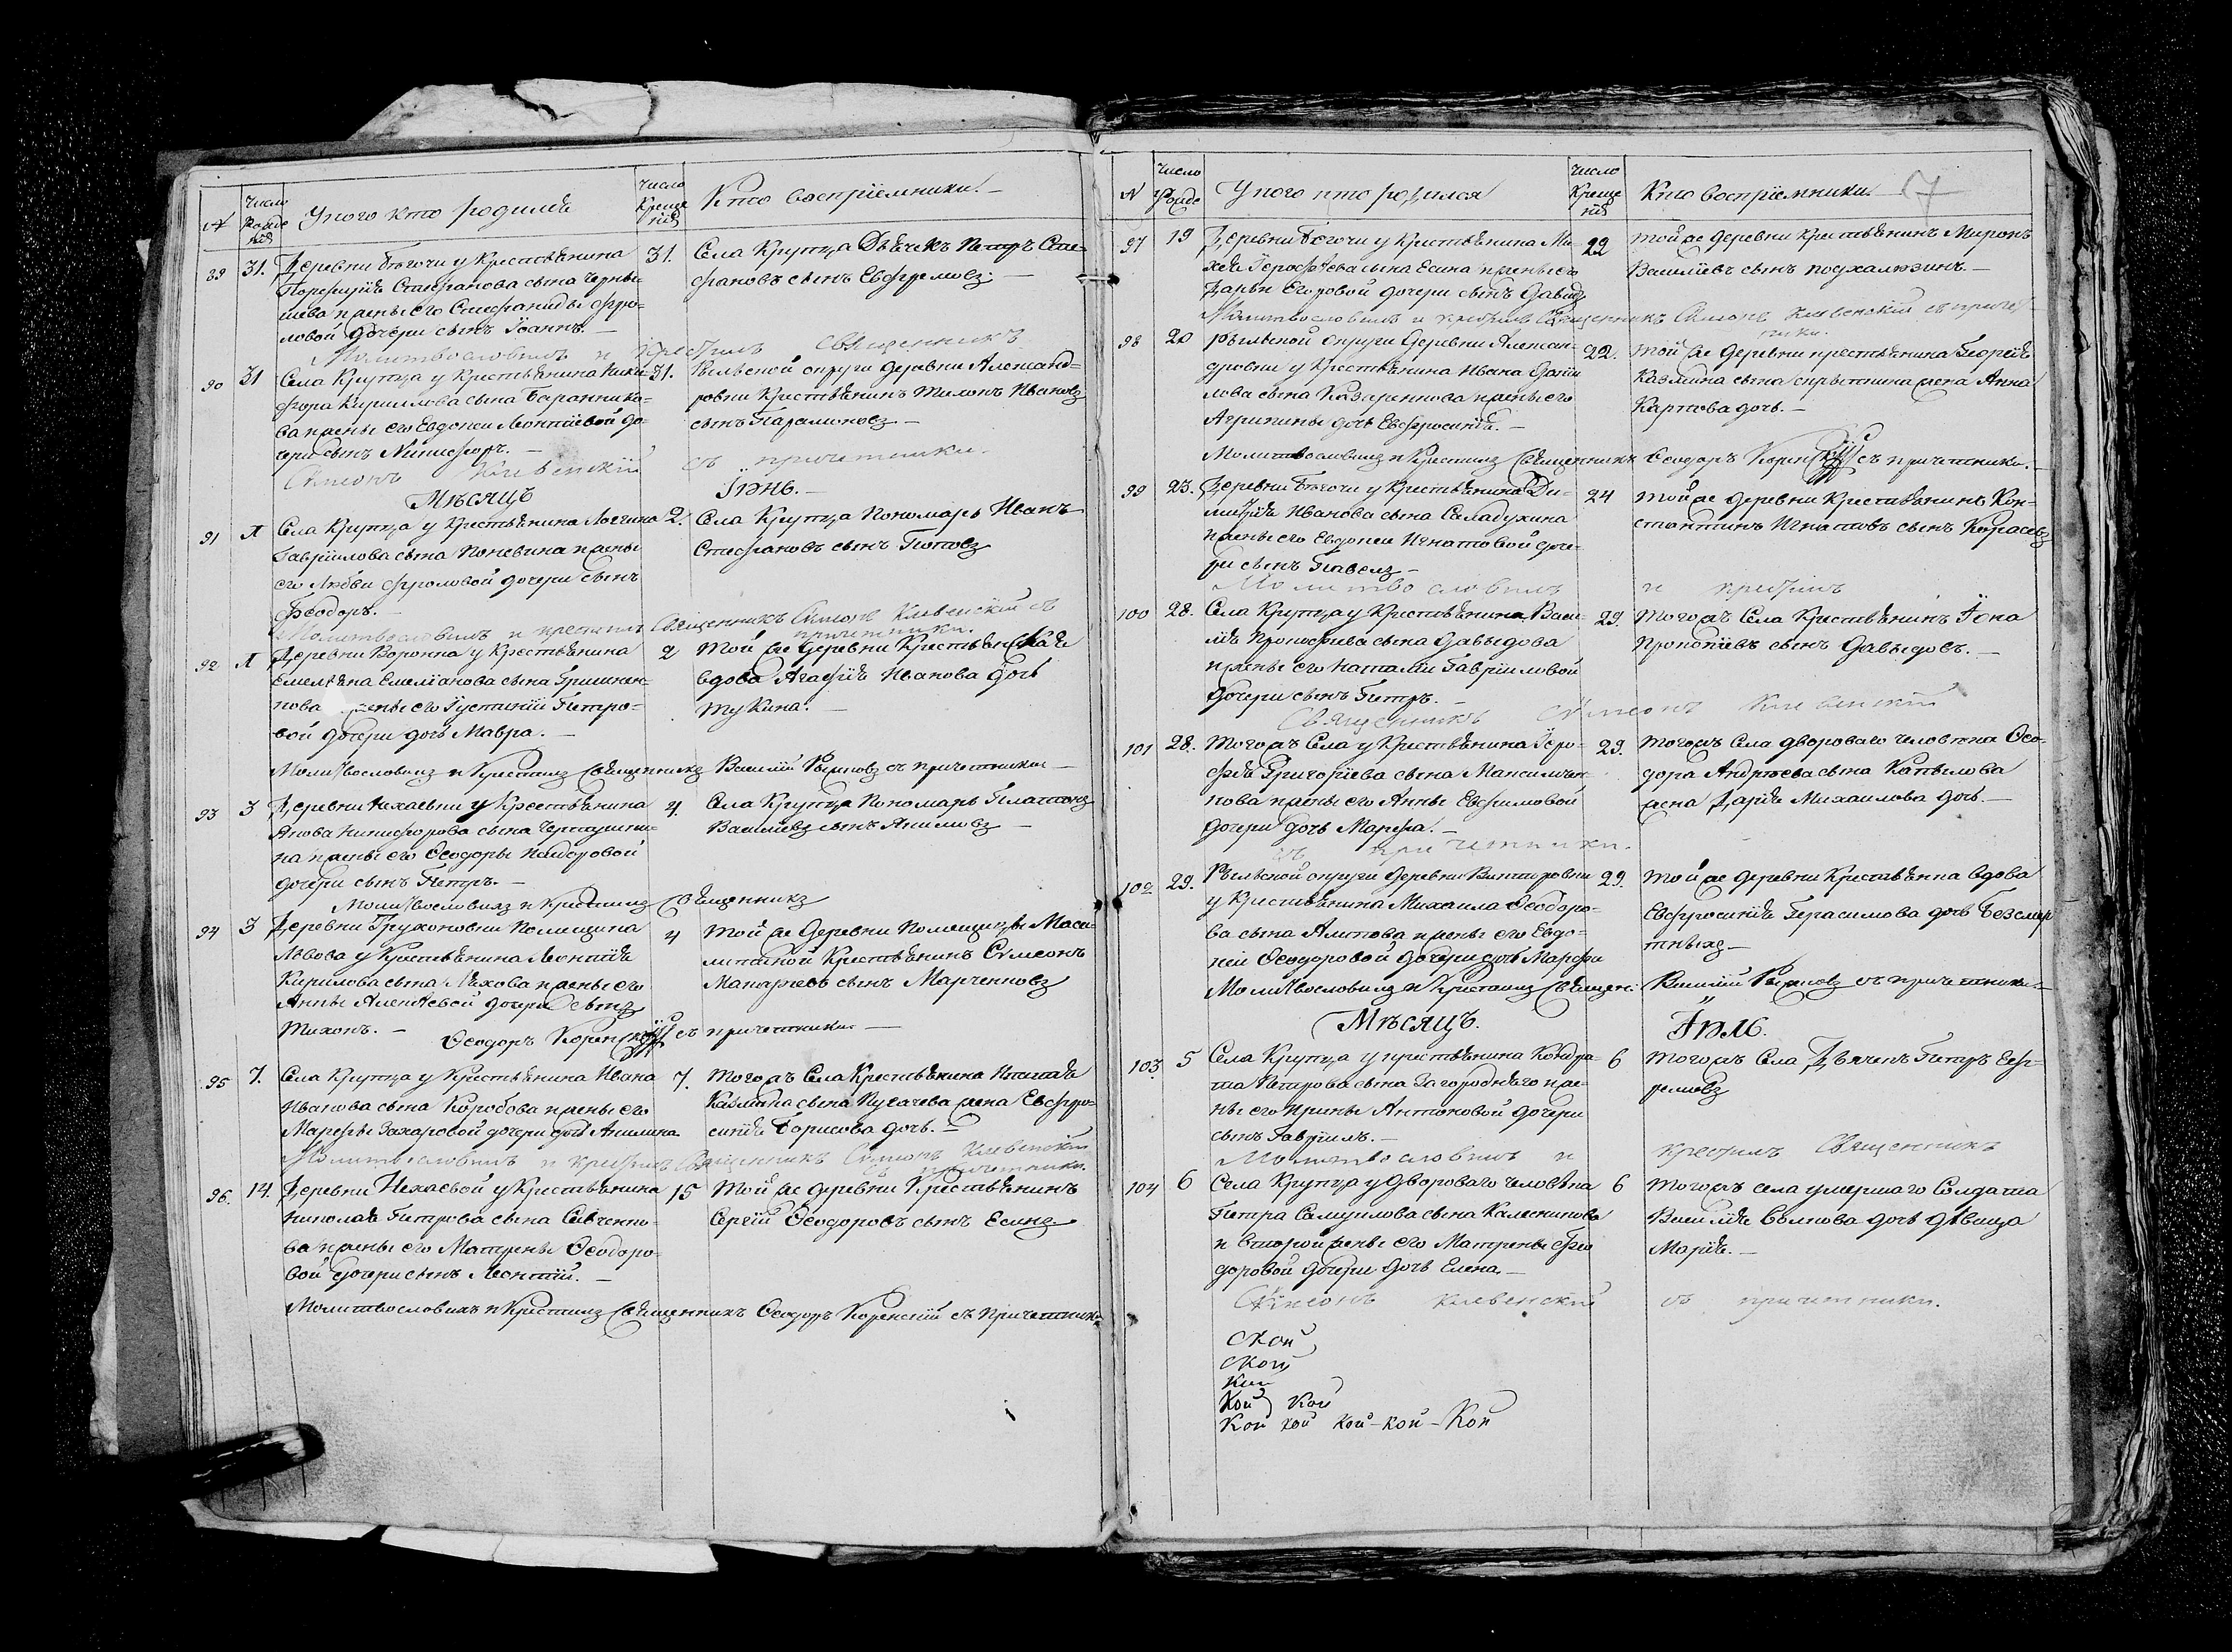 №
Число
Рожде
нія
У кого кто родился
Число
Креще
нія
Кто воспріемники. —
89
31.
Деревни Бѣгочи у Крестьянина
Порфирія Стефанова сына Черны-
шева жены его Стефаниды Фро-
ловой дочери сынъ Іоаннъ. —
31.
Села Крупца Дьячекъ Петръ Сте-
фановъ сынъ Евфремовъ. —
Молитвословилъ и крестилъ священникъ
90
31
Села Крупца у Крестьянина Ники-
фора Кириллова сына Баранник-
ва жены его Евдокіи Леонтіевой до-
чери сынъ Никифоръ. —
31.
Рыльской округи деревни Александ-
ровки Крестьянинъ Филонъ Ивановъ
сынъ Парамоновъ —
Симеонъ Клевенскій съ причетники.
Мѣсяцъ
Іюнь. —
91
Села Крупца у Крестьянина Логгина
Гавріилова сына жены
его Любви Фроловой дочери сынъ
Феодоръ. —
2.
Села Крупца Пономарь Иванъ
Стефановъ сынъ Поповъ
Молитвословилъ и крестилъ Священникъ Симеонъ Клевенскій съ
причетники.
92
Деревни Воронка у Крестьянина
Емеліана Емеліанова сына Гришкен-
кова жены его Іустиніи Петро-
вой дочери дочь Мавра. —
2
Той же деревни Крестьянская
вдова Агафія Иванова дочь
—
Молитвословилъ и Крестилъ Священникъ Василій Рыжковъ съ причетники —
93
3
Деревни Нехаевки у Крестьянина
Никифорова сына
жены его Ѳеодоры
дочери сынъ Петръ. —
4.
Села Крупца Пономарь Платонъ
Васильевъ сынъ —
Молитвословилъ и Крестилъ Священникъ
94
3
Деревни помещика
Львова у Крестьянина Леонтія
Кирилова сына жены его
Анны Алексѣевой дочери сынъ
Тихонъ. —
4
Той же деревни Помещицы
Крестьянинъ Симеонъ
сынъ Марченковъ
Ѳеодоръ Коренскій съ причетники —
95
7.
Села Крупца у Крестьянина Ивана
Иванова сына Коробова жены его
Марфы Захаровой дочери дочь Акилина
7.
Тогожъ Села Крестьянина Игнатія
Казмина сына Пугачева жена Евфро-
синія Борисова дочь. —
Молитвословилъ и крестилъ Священникъ Симеонъ Клевенскій
съ причетники.
96.
14.
Деревни Нехаевой у Крестьянина
Николая Петрова сына Севченко-
ва жены его Матрены Ѳеодоро-
вой дочери сынъ Леонтій. —
15
Той же деревни Крестьянинъ
Сергій Ѳеодоровъ сынъ Есинъ
Молитвословилъ и Крестилъ Священникъ Ѳеодоръ Коренскій съ причетники
№
Число
Рожде
У кого кто родился
Число
Креще
нія
Кто воспріемники.
7
97
19
Деревни Бѣгочи у Крестьянина Ми-
хея Іерофѣева сына Есина жены его
Дарьи Егоровой дочери сынъ Давидъ
22
Той же деревни Крестьянинъ Миронъ
Василіевъ сынъ Подхалюзинъ. —
Молитвословилъ и крестилъ Священникъ Симеонъ Клевенскій съ причет
ники.
98
20
Рыльской округи деревни Алексан-
дровки у Крестьянина Ивана Дани
лова сына Казаренкова жены его
Агрипины дочь Евфросинія. —
22.
Той же деревни крестьянина Георгія
Казмина сына жена Анна
Карпова дочь. —
Молитвословилъ и Крестилъ Священникъ Ѳеодоръ Коренскій съ причетники. —
99
23.
Деревни Бѣгочи у Крестьянина Ди-
митрія Иванова сына Саладухина
жены его Евдокіи Игнатовой доче-
ри сынъ Павелъ —
24
Той же деревни Крестьянинъ Кон-
стантинъ Игнатовъ сынъ Карасевъ
Молитвословилъ и крестилъ
100
28.
Села Крупца у Крестьянина Васи-
лія Прокофиева сына Давыдова
жены его Наталіи Гавріиловой
дочери сынъ Петръ. —
29.
Тогожъ Села Крестьянинъ Іона
Прокопіевъ сынъ Давыдовъ. —
Священникъ Симеонъ Клевенскій
101
28.
Тогожъ Села у Крестьянина Іеро-
фея Григоріева сына Максимен-
кова жены его Анны Евфимовой
дочери дочь Марфа. —
29.
Тогожъ Села двороваго человека Ѳео-
дора Андреева сына Капылова
жена Дарія Михаилова дочь. —
съ причетники.
102
29.
Рыльской округи деревни Викторовки
у Крестьянина Михаила Ѳеодоро-
ва сына Алипова жены его Евдо-
кіи Ѳеодоровой дочери дочь Марфа
29.
Той же деревни Крестьянка вдова
Евфросинія Герасимова дочь Безсмер
тныхъ —
Молитвословилъ и Крестилъ Священ: Василій Рыжковъ съ причетники —
Мѣсяцъ.
Іюль.
103.
5
Села Крупца у крестьянина Кондра-
та Петрова сына Загородняго же-
ны его Ирины Антоновой дочери
сынъ Гавріилъ. —
6
Тогожъ Села Дьячекъ Петръ Евф-
ремовъ
Молитвословилъ и крестилъ Священникъ
104
6
Села Крупца у двороваго человѣка
Петра Самуилова сына Калашникова
и второй жены его Матрены Фео
доровой дочери дочь Елена. —
6
Тогожъ села умершаго Солдата
Василія Волкова дочь девица
Марія. —
Симеонъ Клевенскій съ причетники.
ской
ской
кии
кой кой
кой кой кой-кой-Кой